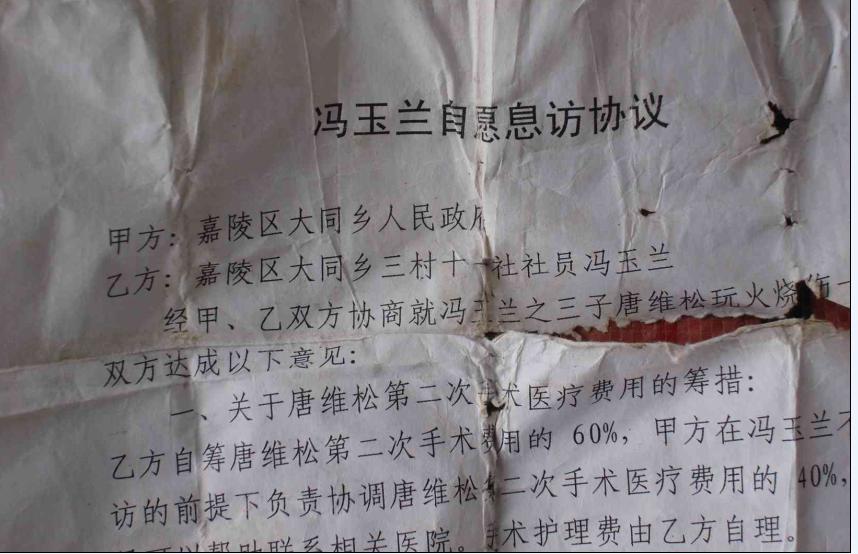 冯玉兰自愿息访协议
甲方：嘉陵区大同乡人民政府
乙方：嘉陵区大同乡三村十一社社员冯玉兰
经甲、乙双方协商就冯玉兰之三子唐维松玩火烧伤一
双方达成以下意见：
一、关于唐维松第二次手术医疗费用的筹措：
乙方自筹唐维松第二次手术费用的 60%，甲方在冯玉兰不
访的前提下负责协调唐维松第二次手术医疗费用的 40%，
可以帮助联系相关医院。手术护理费由乙方自理。